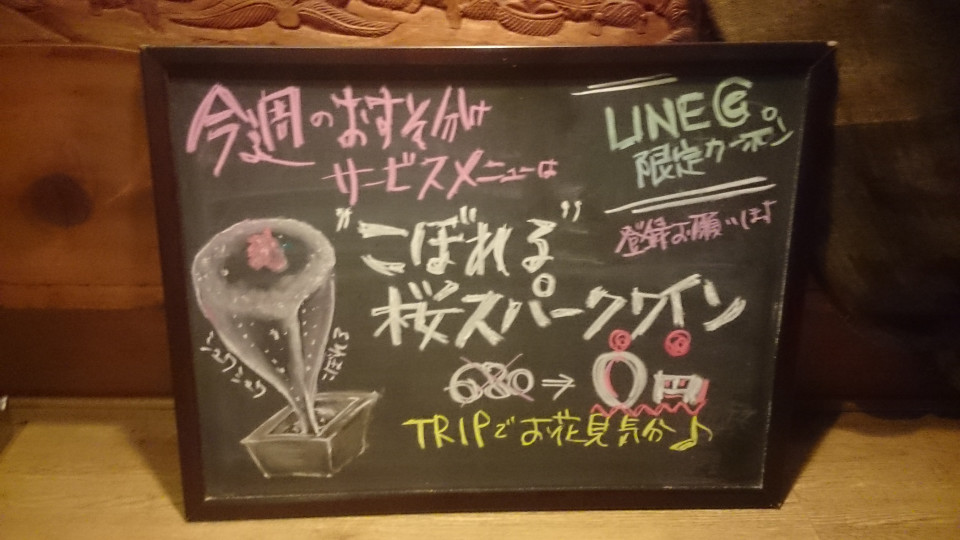 今週のおすそ分け
サービスメニューは
LINE@
限定クーポン
登録お願いします
"こぼれる"
桜スパークワイン
シュワシュワ
こぼれる
680⇒0円
TRIPでお花見気分♪